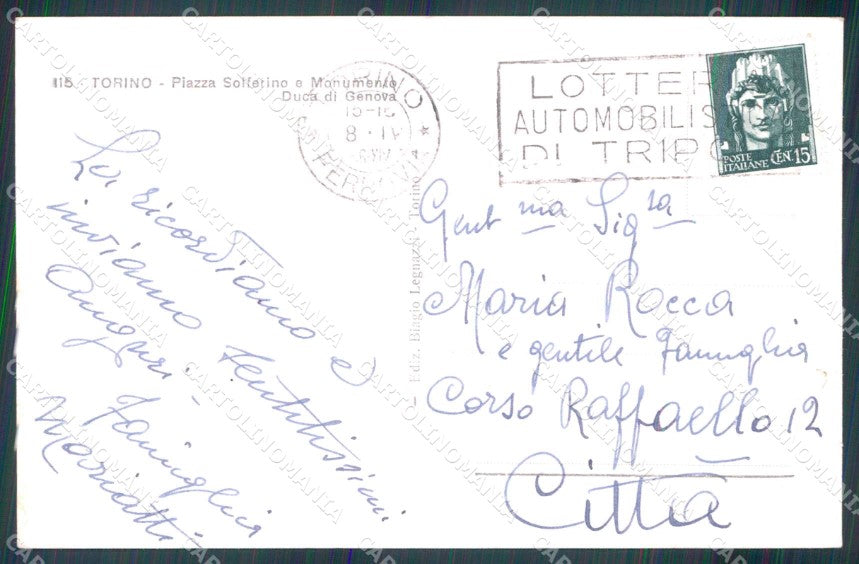 115 - TORINO - Piazza Solferino e Monumento
Duca di Genova
TORINO
8 · IV
FERROVIA
LOTTER
AUTOMOBILIS
DI TRIPO
POSTE
ITALIANE CEN. 15
La ricordiamo e
inviamo tantissimi
auguri -
Famiglia
Mariatti
Ediz. Biagio Legnazzi - Torino
Gent ma Sig ra
Maria Rocca
e gentile Famiglia
Corso Raffaello 12
Città
CARTOLINOMANIA